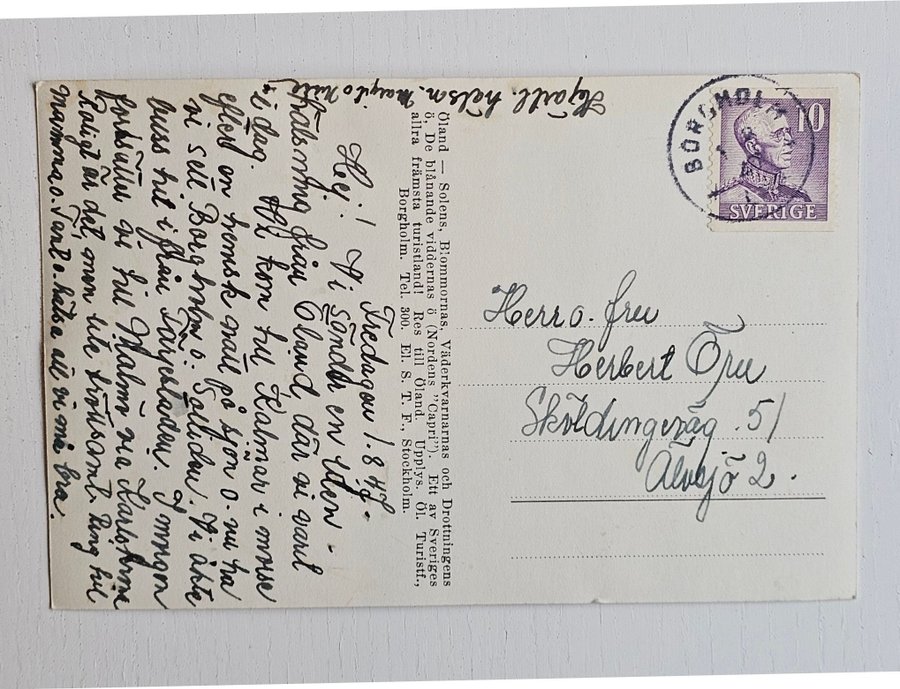 Fredagen 1.8.47.
Hej! Vi sända en liten
hälsning från Öland där vi varit
i dag. Vi kom till Kalmar i morse
efter en hemsk natt på sjön o. nu ha
vi sett Borgholm o. Solliden. Vi åkte
buss hit ifrån Färjestaden. I morgon
fortsätta vi till Malmö via Karlskrona
Roligt är det men lite tröttsamt. Ring till
mamma o. hälsa att vi må bra.
Hjärtl. hälsn. Margit o.
Öland — Solens, Blommornas, Väderkvarnarnas och Drottningens
ö, De blånande viddernas ö (Nordens "Capri"). Ett av Sveriges
allra främsta turistland! Res till Öland. Upplys. Öl. Turistf.,
Borgholm. Tel. 300. El. S. T. F., Stockholm.
BORGHOLM
10
SVERIGE
Herr o. fru
Herbert
Sköldingeväg. 51
Älvsjö 2.